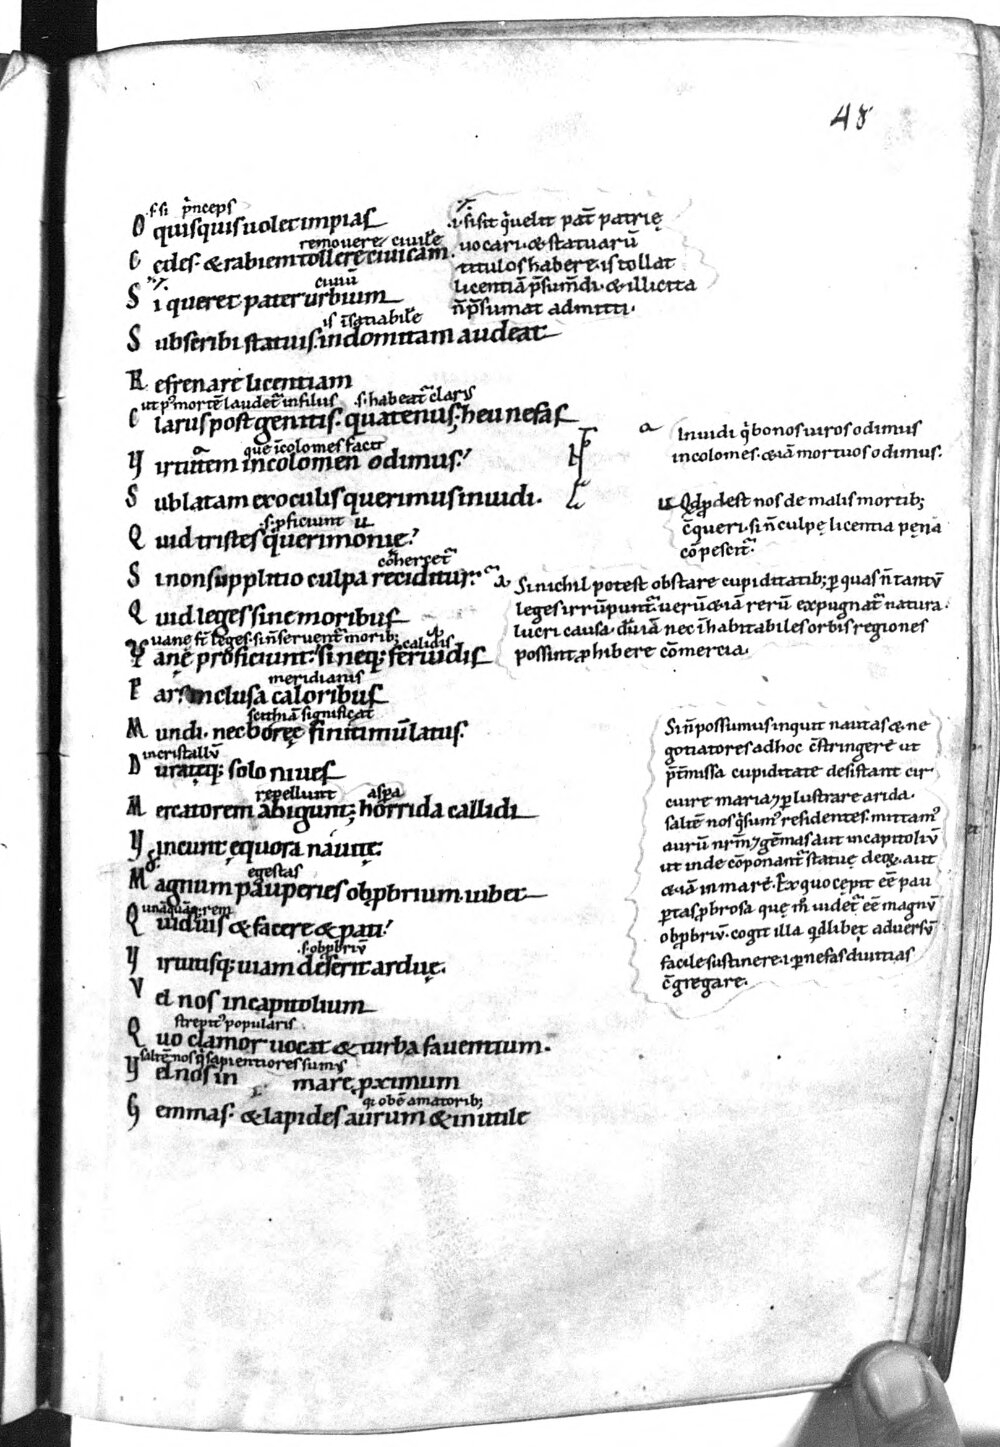 48
.s. si p̄nceps
O quisquis uolet impias
remouere ciuile
C edes. & rabiem tollere ciuicam.
ciuiū
S i queret pater urbium
is īsatiabile
S ubscribi statuis. indomitam audeat
R efrenare licentiam
ut p' mortē laudet' in filiis .s. habeat' claris
C larus post genitis. quatenus; heu nefas
que īcolomes facit
V irtutem incolomen odimus.
S ublatam ex oculis querimus inuidi.
.s. pficiunt
Q uid tristes querimonię?
cohercet'
S i non supplitio culpa reciditur.
Q uid leges sine moribus
uanę st̄ leges. si n̄ seruent' morib;
calidis
V anę proficiunt. si neq; feruidis
meridianis
P ars inclusa caloribus
scithiā significat
M undi. nec boreę finitimū latus.
in cristallū
D uratęq; solo niues
repellunt aspa
M ercatorem abigunt; horrida callidi
V incunt ęquora nautę.
egestas
M agnum pauperies obp̄brium. iubet
Q uiduis & facere & pati?
.s. obp̄briū
V irtutisq; uiam deserit arduę.
V el nos in capitolium
strepit' popularis
Q uo clamor uocat & turba fauentium.
saltē nos q' sapientiores sum'
V el nos in mare p̄ximum
q obē amatorib;
G emmas. & lapides aurum & inutile
.i. si sit q' uelit pat̄ patrię
uocari. & statuarū
titulos habere. is tollat
licentiā p̄sumdi. & illicita
n̄ p̄sumat admitti.
a Inuidi q' bonos uiros odimus
incolomes. & iā mortuos odimus.
u Qd p̄dest nos de malis morib;
c̄queri. si n̄ culpę licentia pęna
cōpescit'.
Si nichil potest obstare cupiditatib; p quas n̄ tantū
leges irrūpunt'. uerū & iā rerū expugnat' natura.
lucri causa. dū iā nec īhabitabiles orbis regiones
possint p̄hibere cōmercia.
Si n̄ possumus inquit nautas & ne
gotiatores ad hoc c̄stringere ut
p̄t̄missa cupiditate desistant cir
cuire maria 7 plustrare arida.
saltē nos q' sum' residentes. mittam'
aurū nr̄m 7 gēmas aut in capitoliū
ut inde cōponant' statuę deoꝝ. aut
& iā in mare. Ex quo cępit eē pau
ptas p̄brosa quę m̄ uidet' eē magnū
obp̄briū. cogit illa qdlibet aduersū
facile sustinere. 1 p nefas diuitias
c̄gregare.